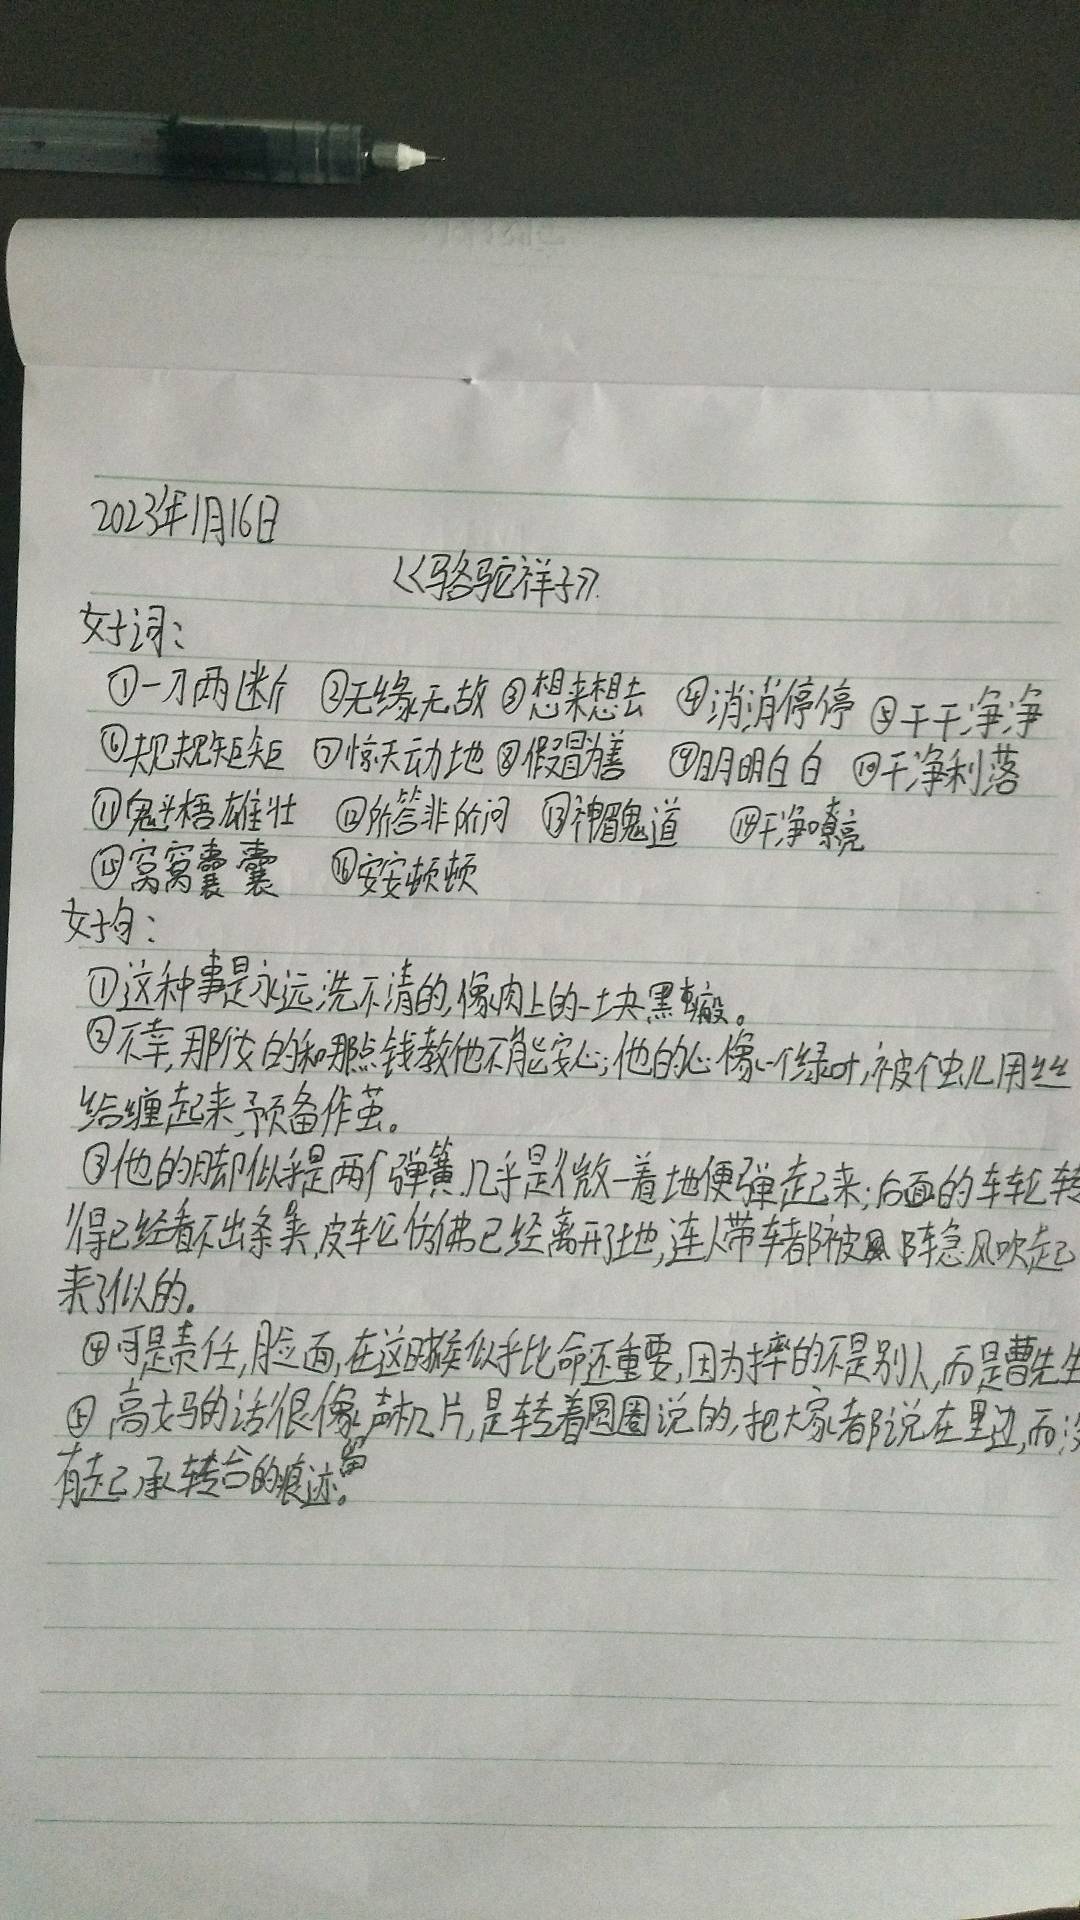 2023年1月16日
《骆驼祥子》
好词：
①一刀两断 ②无缘无故 ③想来想去 ④消消停停 ⑤干干净净
⑥规规矩矩 ⑦惊天动地 ⑧假冒为善 ⑨明明白白 ⑩干净利落
⑪魁梧雄壮 ⑫所答非所问 ⑬神眉鬼道 ⑭干净嘹亮
⑮窝窝囊囊 ⑯安安顿顿
好句：
①这种事是永远洗不清的，像肉上的一块黑瘢。
②不幸，那女的和那点钱教他不能安心；他的心像一个绿叶，被个虫儿用丝
给缠起来，预备作茧。
③他的脚似乎是两个弹簧，几乎是微一着地便弹起来；后面的车轮转
得已经看不出条来，皮轮仿佛已经离开了地，连人带车都被阵急风吹起
来了似的。
④可是责任，脸面，在这时候似乎比命还重要，因为摔的不是别人，而是曹先生
⑤高妈的话很像留声机片，是转着圆圈说的，把大家都说在里边，而没
有起承转合的痕迹。